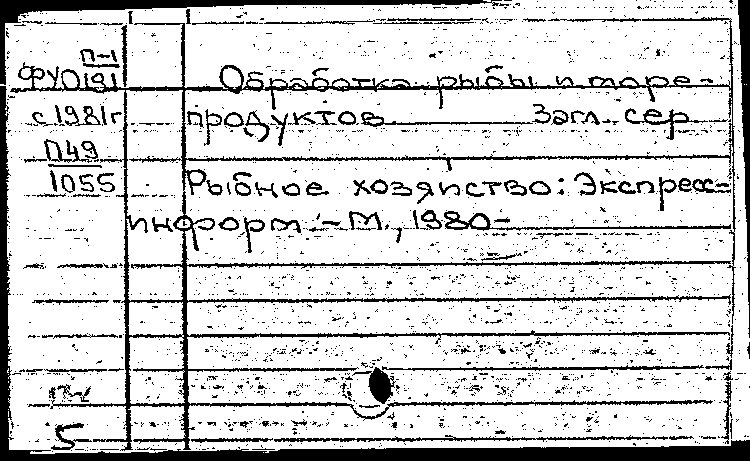 П-1
ФУ0191
с 1981г
П49
1055
Обработка рыбы и море-
продуктов Загл. сер.
Рыбное хозяйство: Экспресс-
информ. - М., 1980-
П-1
5